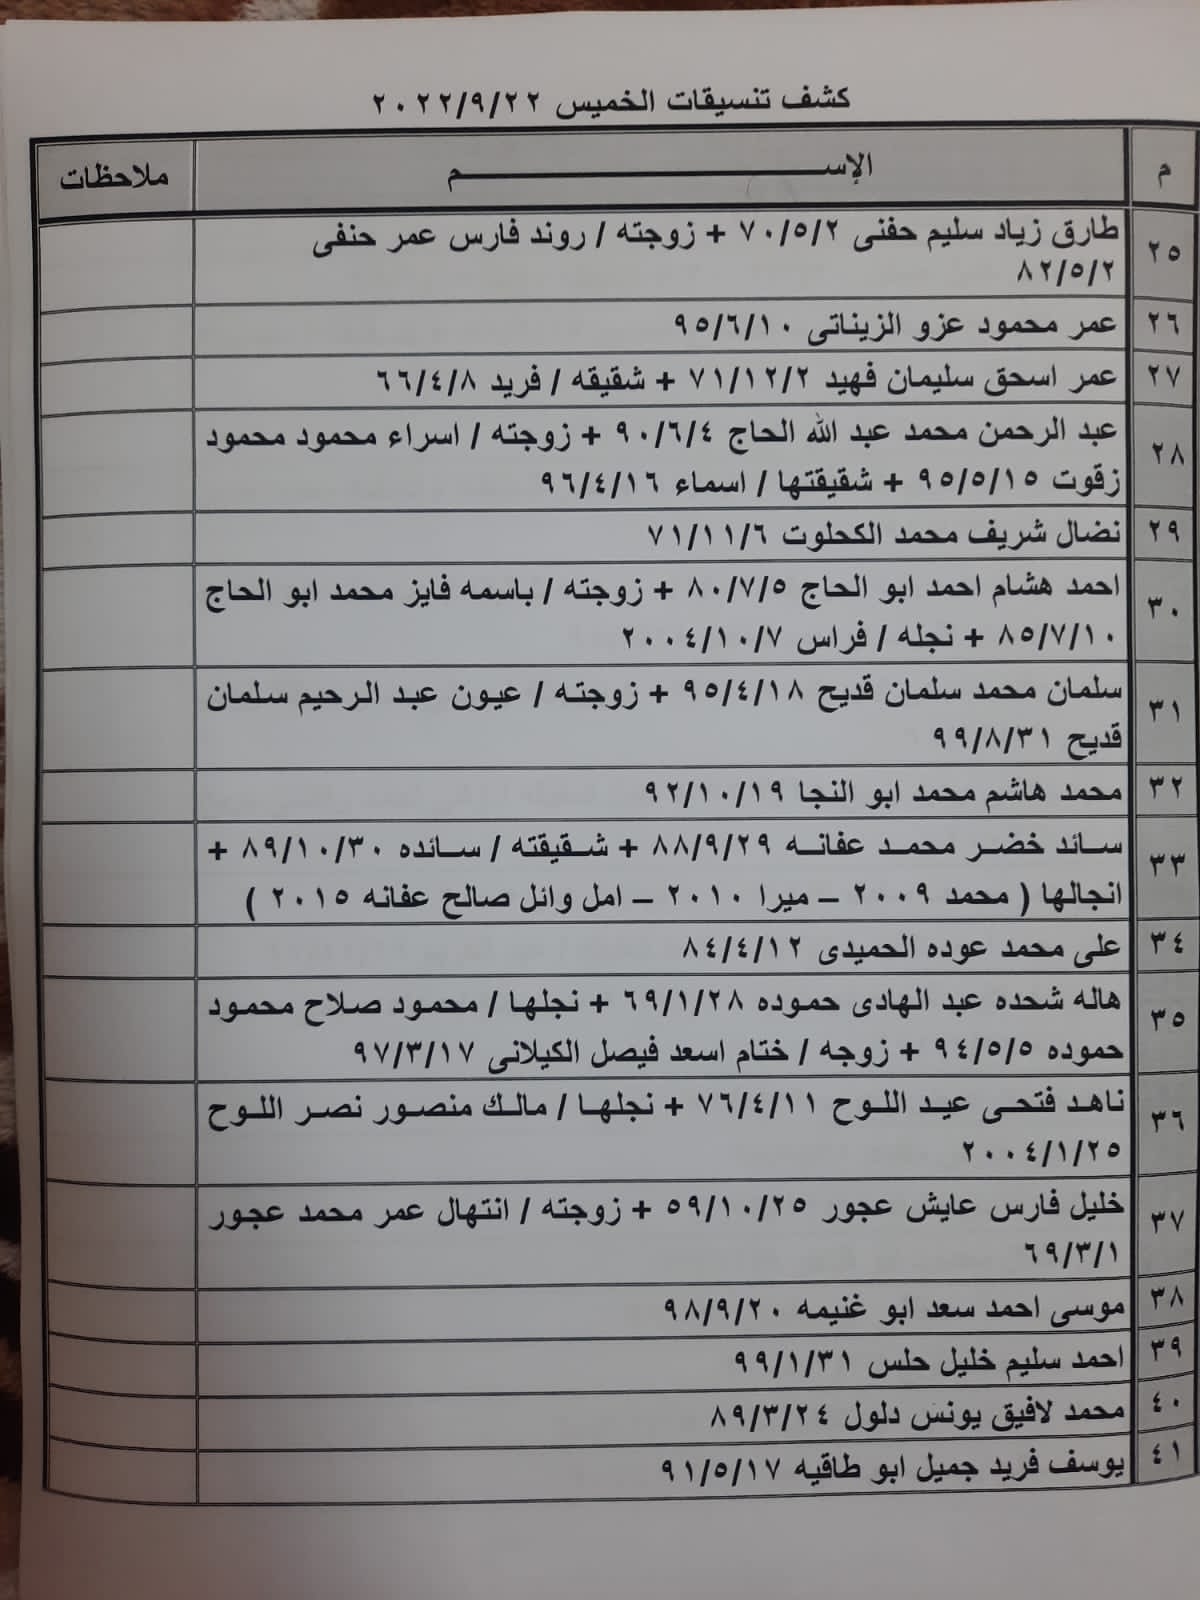 كشف تنسيقات الخميس ٢٠٢٢/٩/٢٢
م الإســـم ملاحظات
٢٥ طارق زياد سليم حفنى ٧٠/٥/٢ + زوجته / روند فارس عمر حنفى
٨٢/٥/٢
٢٦ عمر محمود عزو الزيناتى ٩٥/٦/١٠
٢٧ عمر اسحق سليمان فهيد ٧١/١٢/٢ + شقيقه / فريد ٦٦/٤/٨
٢٨ عبد الرحمن محمد عبد الله الحاج ٩٠/٦/٤ + زوجته / اسراء محمود محمود
زقوت ٩٥/٥/١٥ + شقيقتها / اسماء ٩٦/٤/١٦
٢٩ نضال شريف محمد الكحلوت ٧١/١١/٦
٣٠ احمد هشام احمد ابو الحاج ٨٠/٧/٥ + زوجته / باسمه فايز محمد ابو الحاج
٨٥/٧/١٠ + نجله / فراس ٢٠٠٤/١٠/٧
٣١ سلمان محمد سلمان قديح ٩٥/٤/١٨ + زوجته / عيون عبد الرحيم سلمان
قديح ٩٩/٨/٣١
٣٢ محمد هاشم محمد ابو النجا ٩٢/١٠/١٩
٣٣ سائد خضر محمد عفانه ٨٨/٩/٢٩ + شقيقته / سائده ٨٩/١٠/٣٠ +
انجالها ( محمد ٢٠٠٩ – ميرا ٢٠١٠ – امل وائل صالح عفانه ٢٠١٥ )
٣٤ على محمد عوده الحميدى ٨٤/٤/١٢
٣٥ هاله شحده عبد الهادى حموده ٦٩/١/٢٨ + نجلها / محمود صلاح محمود
حموده ٩٤/٥/٥ + زوجه / ختام اسعد فيصل الكيلانى ٩٧/٣/١٧
٣٦ ناهد فتحى عيد اللوح ٧٦/٤/١١ + نجلها / مالك منصور نصر اللوح
٢٠٠٤/١/٢٥
٣٧ خليل فارس عايش عجور ٥٩/١٠/٢٥ + زوجته / انتهال عمر محمد عجور
٦٩/٣/١
٣٨ موسى احمد سعد ابو غنيمه ٩٨/٩/٢٠
٣٩ احمد سليم خليل حلس ٩٩/١/٣١
٤٠ محمد لافيق يونس دلول ٨٩/٣/٢٤
٤١ يوسف فريد جميل ابو طاقيه ٩١/٥/١٧